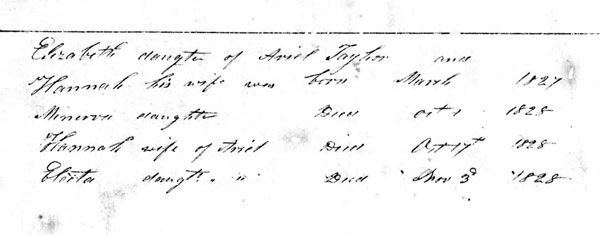 Elizabeth daughte of Ariel Taylor and
Hannah his wife was born March 1827
Minerva daughte Died Oct 1 1828
Hannah wife of Ariel Died Oct 17th 1828
Electa daught " " Died Nov 3d 1828